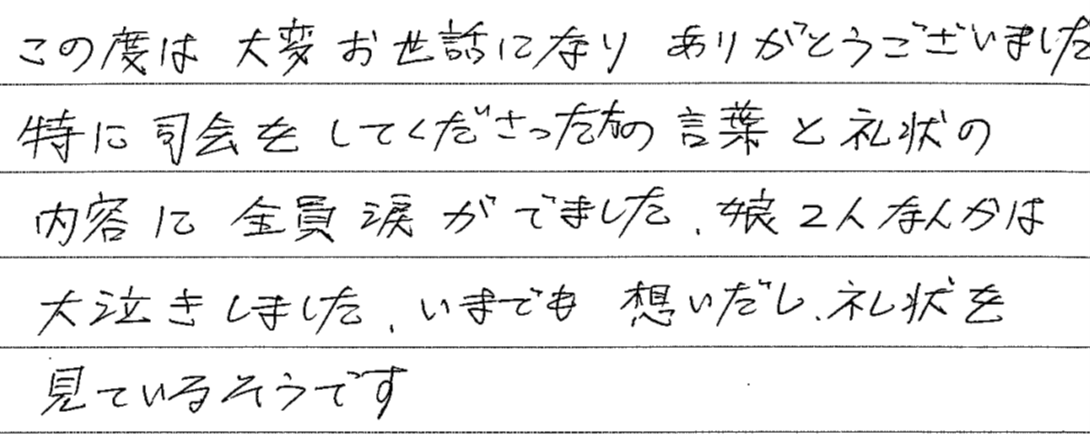 この度は 大変お世話になり ありがとうございました
特に司会をしてくださった方の言葉と礼状の
内容に 全員涙がでました、娘2人なんかは
大泣きしました、いまでも 想いだし、礼状を
見ているそうです